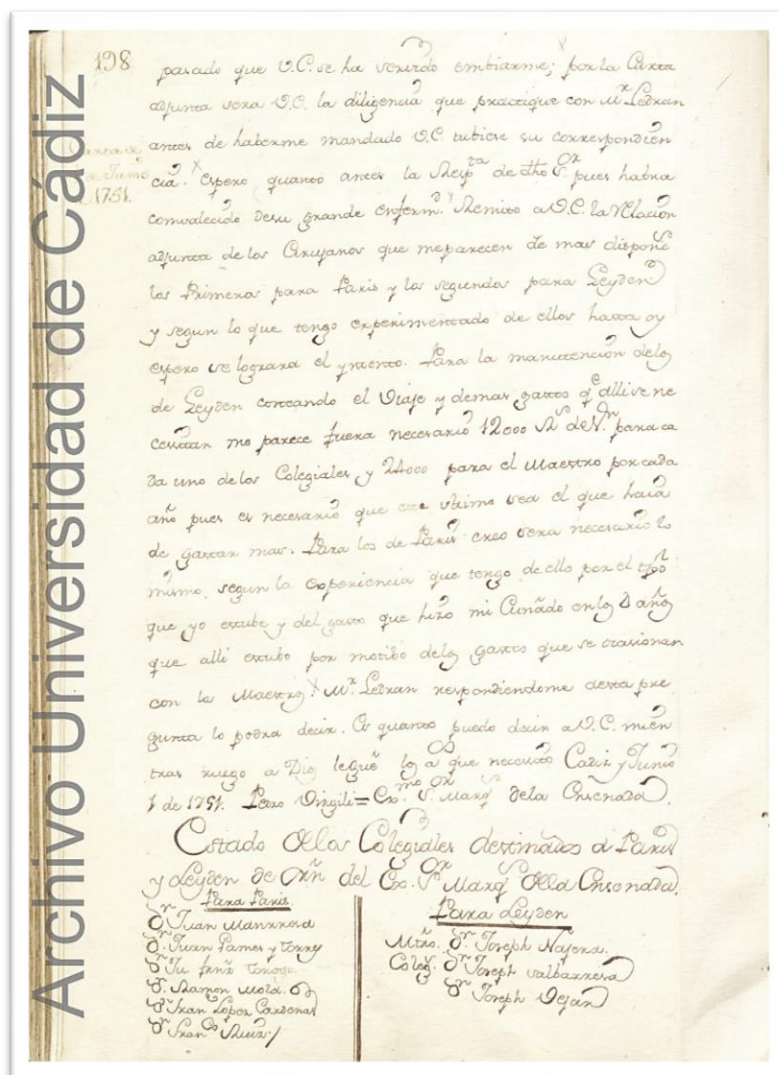 Archivo Universidad de Cádiz
198
pasado que V.E. se ha servido embiarme; por la Carta
adjunta vera V.E. la diligencia que practique con Mr Ledran
antes de haberme mandado V.E. tubiese su correspondien
cia. espero quanto antes la Respta de dho Sor pues habra
Junio
1751.
convalecido desu grande enferm. Remito a V.E. la relacion
adjunta de los Cirujanos que meparecen de mas disposn
los Primeros para Paris y los segundos para Leyden
y segun lo que tengo experimentado de ellos hasta oy
espero se lograra el yntento. Para la manutencion delos
de Leyden contando el Viaje y demas gastos qe alli se ne
cesitan me parece fuera necesario 12000 Rs de Vn para ca
da uno delos Colegiales y 24000 para el Maestro por cada
año pues es necesario que este ultimo sea el que haia
de gastar mas. Para los de Paris creo sera necesario lo
mismo, segun la experiencia que tengo de ello por el tpo
que yo estube y del gasto que hizo mi Cuñado en los años
que alli estubo por motibo delos gastos que se ocasionan
con los Maestros. Mr Ledran respondiendome desta pre
gunta lo podra decir. Es quanto puedo decir a V.E. mien
tras ruego a Dios legue los as que necesito Cadiz y Junio
1 de 1751. Pedro Virgili = Exmo Sor Marqs dela Ensenada
Estado dellos Colegiales destinados a Paris
y Leyden de orn del Exmo Sor Marqs della Ensenada.
Para Paris.
Dn Juan Manresa
Dn Juan Pames y Torres
Dn Ramon
Dn Fran Lopez Cardenas
Dn Franco Ruiz
Para Leyden
Mtro. Dn Joseph Najera.
Coleg. Dn Joseph Salbarresa
Dn Joseph Vejar